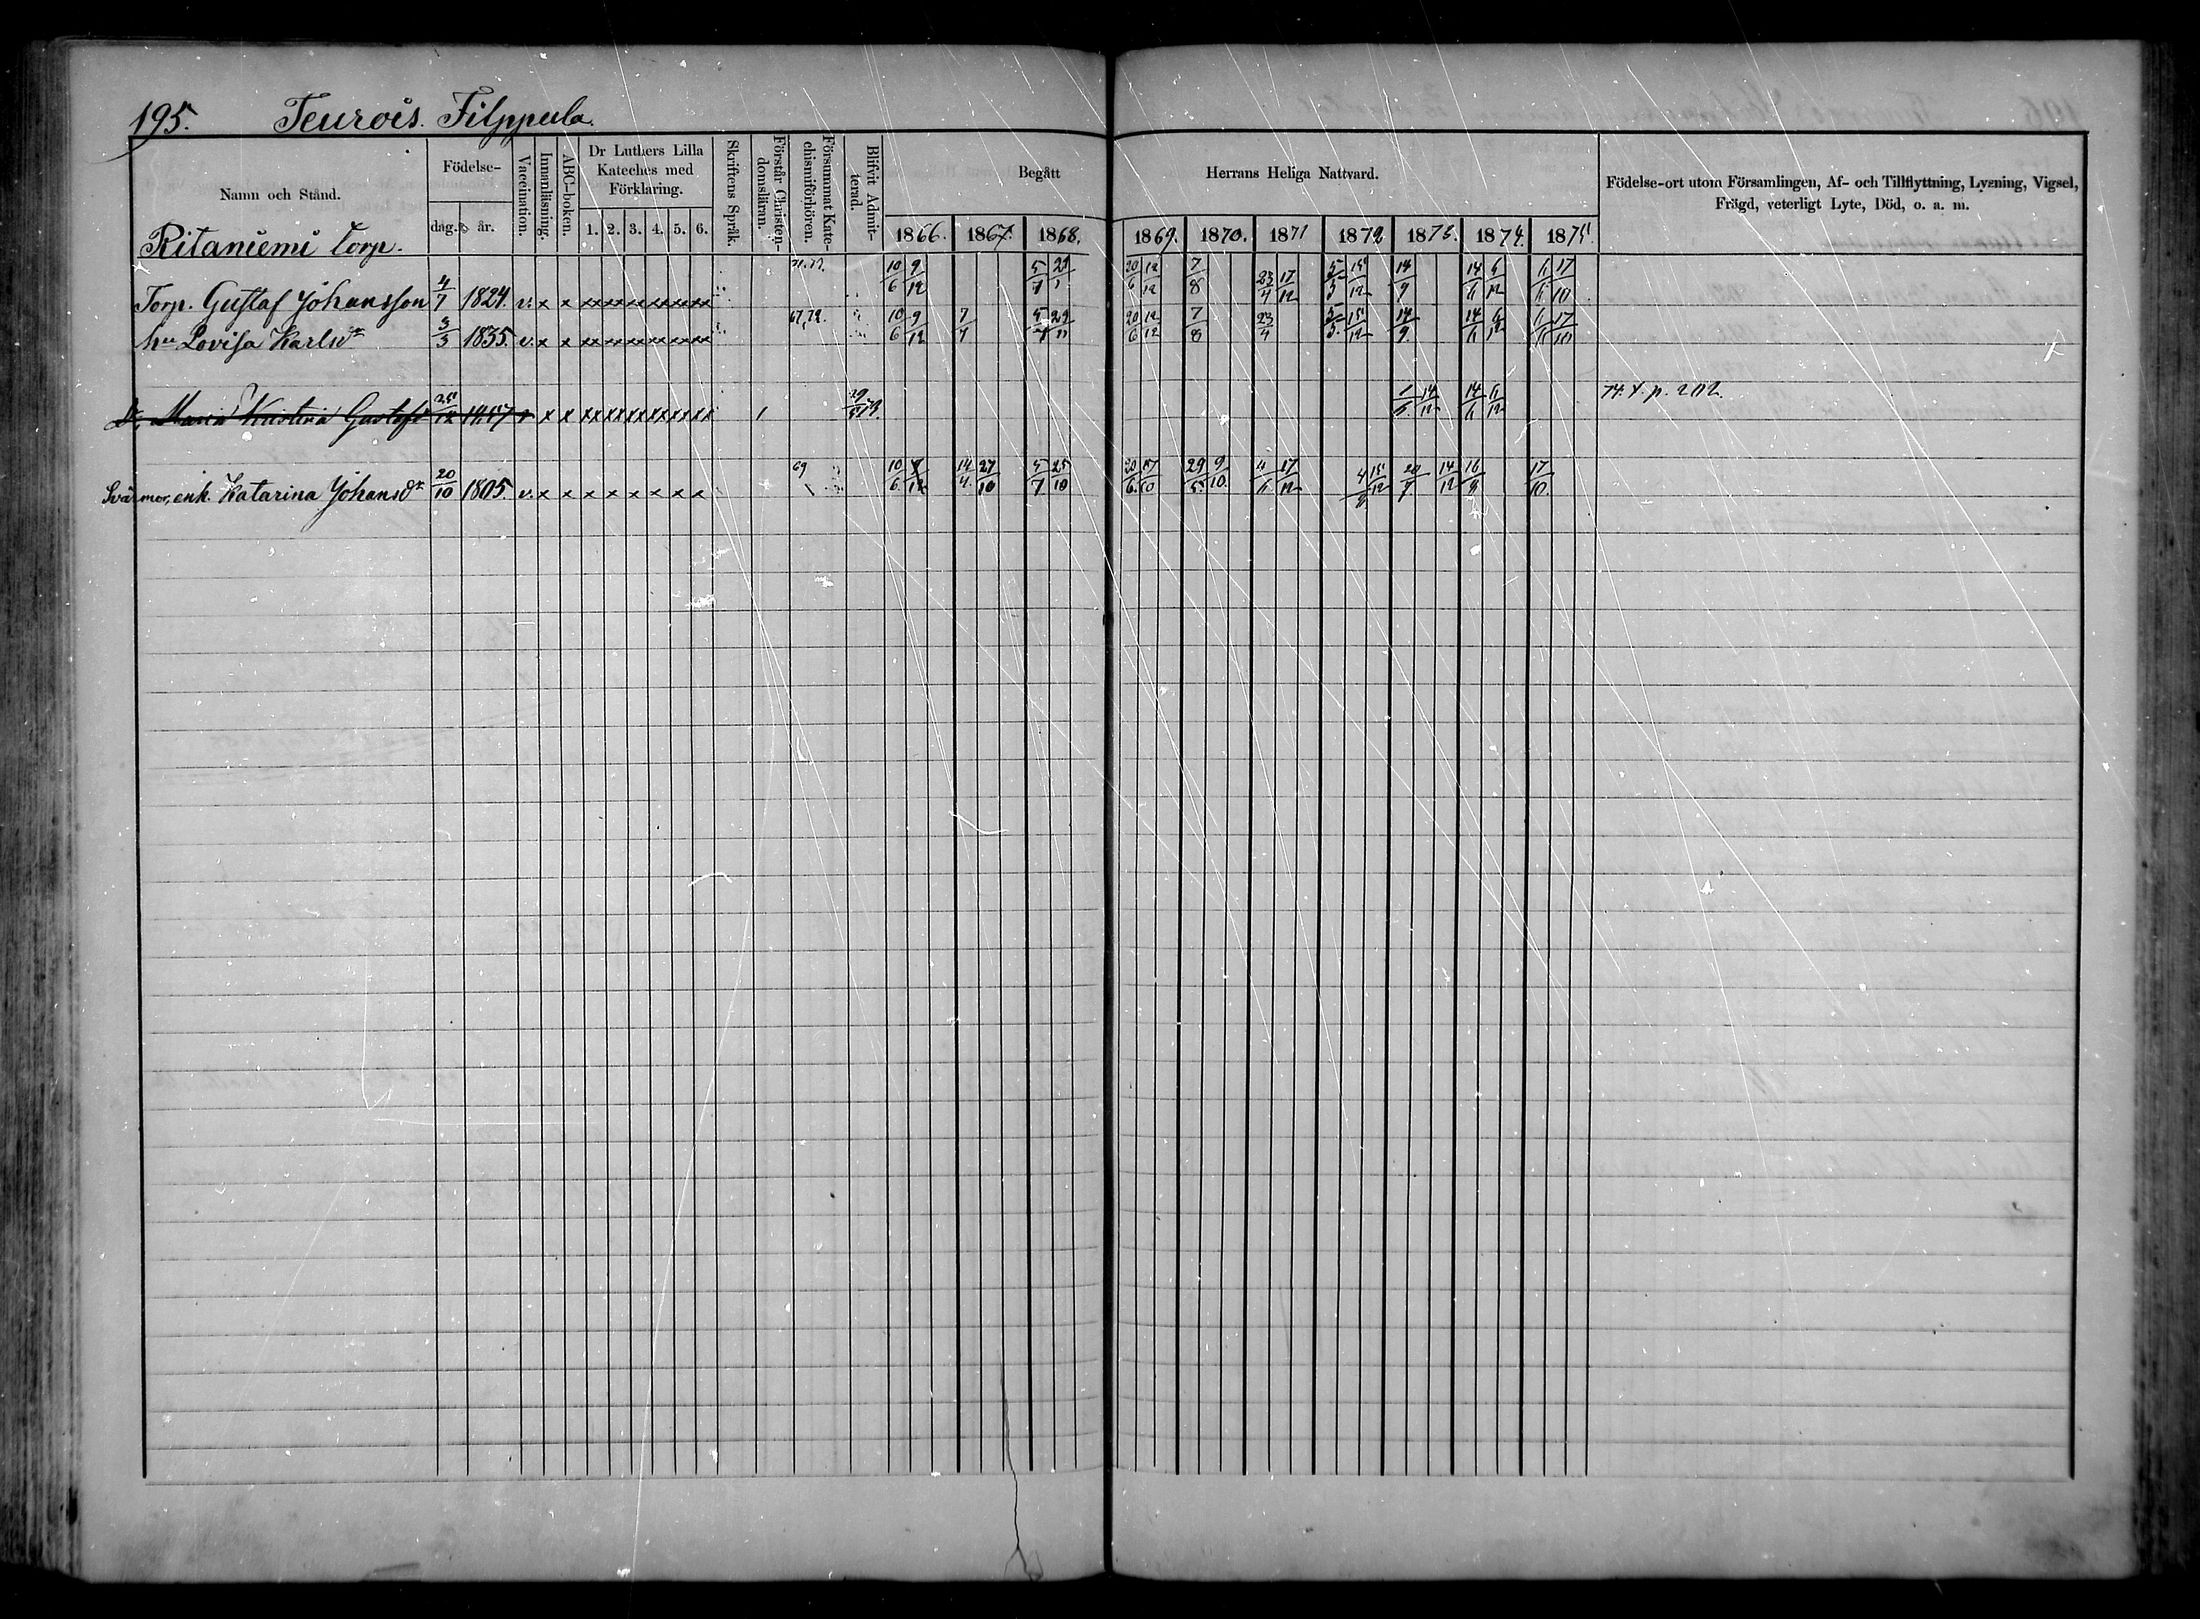 195. Teurois. Filppula.
Namn och Stånd.
Födelse-
dag. år.
Vaccination.
Innanläsning.
ABC-boken.
Dr Luthers Lilla Kateches med Förklaring.
1. 2. 3. 4. 5. 6.
Skriftens Språk.
Förstår Christen-domsläran.
Försummat Kate-chismiförhören.
Blifvit Admit-terad.
Begått Herrans Heliga Nattvard.
1866. 1867. 1868. 1869. 1870. 1871 1872 1873. 1874. 1875.
Födelse-ort utom Församlingen, Af- och Tillflyttning, Lysning, Vigsel,
Frägd, veterligt Lyte, Död, o. a. m.
Ritaniemi Torp.
Torp. Gustaf Johansson 4/7 1824. v. x x xx xx xx xx xx xx 10/6 9/12 5/7 20/6 12/12 7/8 23/4 17/12 5/3 15/12 14/9 14/11 6/12 17/10
hu Lovisa Karlsdr 3/3 1835. v. x x xx xx xx xx xx xx 67,72. 10/6 9/12 7/7 5/7 29/11 20/6 12/12 7/8 23/4 5/3. 15/12 14/9. 14/11 6/12 17/10
Dr. Maria Kristina Gustafsdr 25/12 1857 v x x xx xx xx xx xx xx 1 14/12 14/11 6/12 74. f. p. 202.
Svärmor, enk. Katarina Johansdr 20/10 1805. v. x x x x x x x x 69 10/6. 14/4. 27/10 5/7 25/10 20/6. 17/10 29/5. 9/10. 17/12 4/8 15/12 14/12 16/8 17/10.